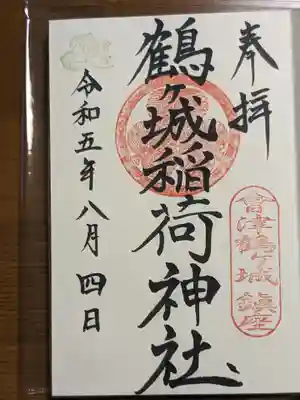 奉拝
會津鶴ヶ城鎮座
鶴ヶ城稲荷神社
令和五年八月四日